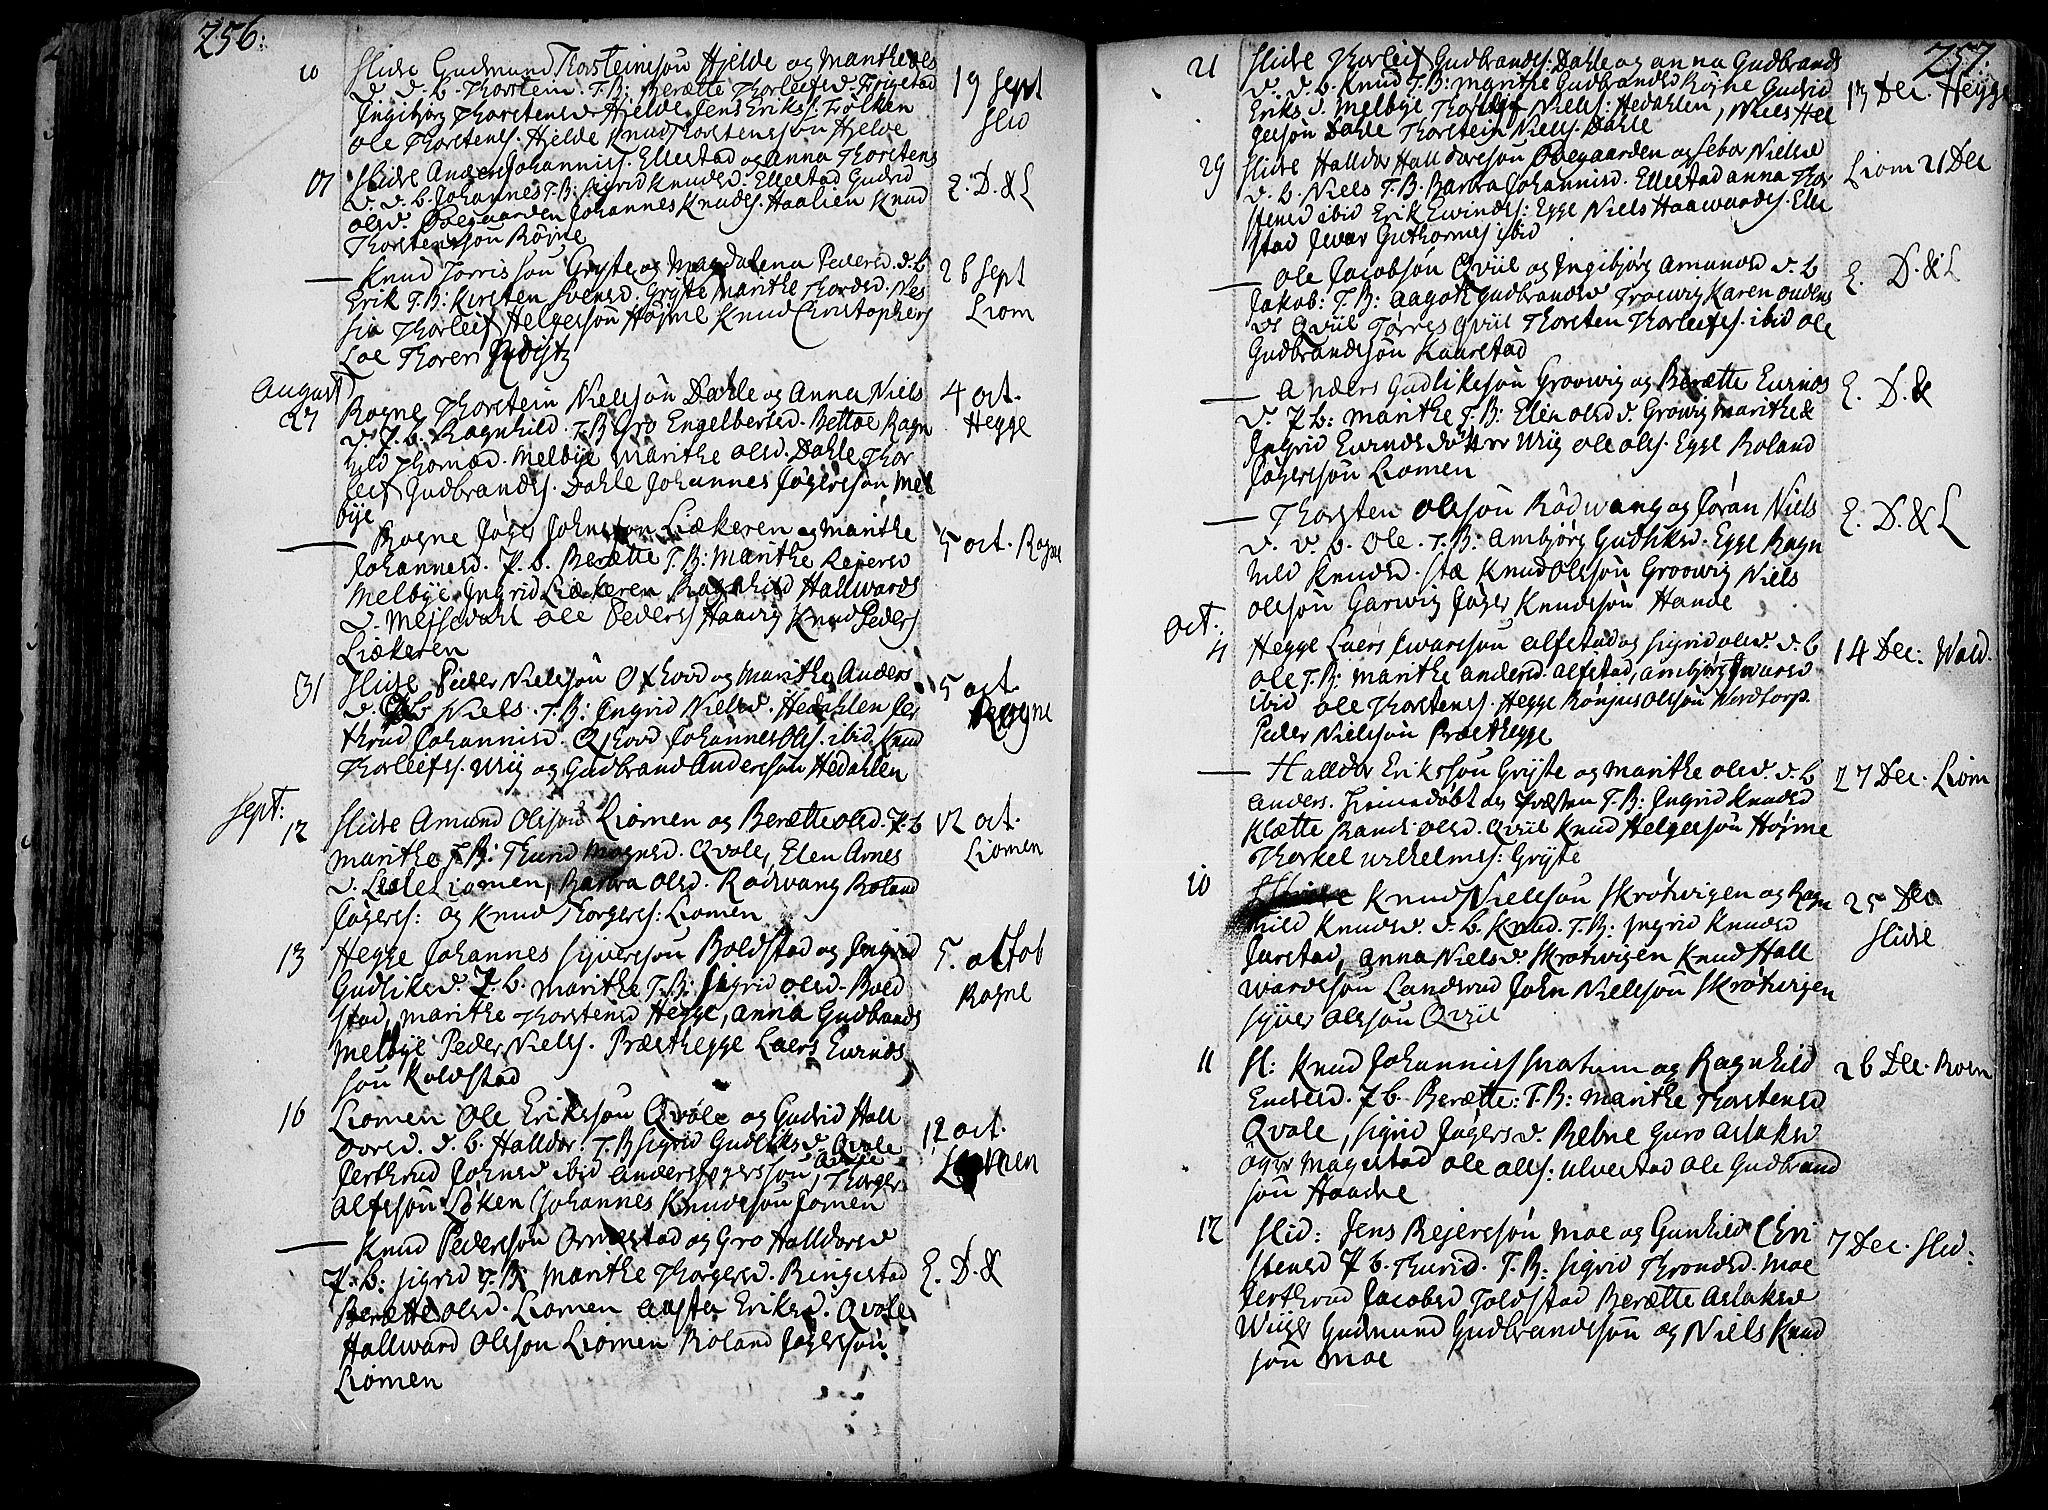 256.
10 Slidre Gudmund Thorsteinssøn Hjelde og Marithe Ols
d. d. b. Thorstein. T. B: Berætte Thorleifsd. Frigstad
Ingibjørg Thorstensd Hjelde, Jens Eriks. Folken
Ole Thorstens. Hjelde Knud Thorstenssøn Hjelde
19 Sept
Slid
Slidre Anders Johanniss. Ellestad og Anna Thorstens
d. d. b. Johannes T. B: Sigrid Knudsd. Ellestad Gudrid
Olsd. Øvegaarden Johannes Knuds. Haalien Knud
Thorstenssøn Røjne
E. D. & L
— Knud Torrissøn Gryte og Magdalena Pedersd. d. b
Erik T. B: Kirsten Svensd. Gryte Marithe Thordsd. Nes
Thorleif Helgessøn Højme Knud Christophers
Loe Thoren
26 Sept
Liom
August
27 Rogne Thorstein Nielssøn Dahle og Anna Niels
d. P. b. Ragnhild. T. B Gro Engelbertsd. Bettoe Ragn
hild Thomasd. Melbye Marithe Olsd. Dahle Thor
leif Gudbrands. Dahle Johannes Jøgerssøn Mel
bye
4 oct.
Hegge
— Rogne Jøger Johnssøn Liækeren og Marithe
Johannesd. P. b. Berætte T. B: Marithe Rejersd
Melbye Ingrid Liækeren Ragnhild Hallwards
d. Ole Peders Haavig Knud Peders
Liækeren
5 oct. Rogne
31 Slidre Peder Nielssøn Qhovd og Marithe Anders
d. d. b Niels. T. B: Ingrid Nielsd. Hedahlen Jer
thrud Johannisd. Qhovd Johannes Ols. ibid. Knud
Thorleifs. Wiig og Gudbrand Anderssøn Hedahlen
5 oct.
Rogne
Sept:
12 Slidre Amund Olssøn Liomen og Berætte Olsd. P. b
Marithe T. B: Thurid Mognsd. Qvale, Elen Arnes
d. Lisle Liomen, Barbra Olsd. Rødwang Roland
Jøgers: og Knud Thorgers: Liomen
12 oct.
Liomen
13 Hegge Johannes Syverssøn Boldstad og Ingrid
Gudliksd. P. b. Marithe T. B: Sigrid Olsd. Bold
stad, Marithe Thorstensd Hegge, Anna Gudbrands
Melbye Peder Niels. Præsthegge Laers Evinds
søn Koldstad
5. octob
Rogne
16 Liomen Ole Erikssøn Qvåle og Gudrid Hall
dorsd. d. b. Halldor T. B Sigrid Gudliksd. Qvale
Jerthrud Johnsd ibid Anders Jøgerssøn Qvale, Thorger
Alfssøn Løken Johannes Knudssøn Jomen
12 oct.
Liomen
— Knud Pederssøn Ormestad og Gro Halldorsd
P. b: Sigrid T. B: Marithe Thorgersd. Ringestad
Berætte Olsd. Liomen Austen Eriksd. Qvale
Hallward Olssøn Liomen Roland Jøgerssøn
Liomen
E. D. &
257.
21 Slidre Thorleif Gudbrands: Dahle og Anna Gudbrands
d. d. b. Knud T. B: Marithe Gudbrandsd Røjne Gudrid
Eriks d. Melbye Thorleif Niels: Hedahlen, Niels Hel
gessøn Dahle Thorstein Niels. Dahle
13 Dec. Hegge
29 Slidre Halldor Halldorssøn Øvegaarden og Sebor Nielsd
d. b. Niels T. B. Barbra Johannisd. Ellestad Anna Thor
stensd ibid Erik Ewinds: Egge Niels Haawards. Elle
stad Iwar Guthormes ibid
Liom 21 Dec
— Ole Jacobssøn Qviil og Ingibjørg Amundsd d. b
Jakob: T. B: Aagoth Gudbrandsd Trowig Karen Oudens
d. Qviil Torres Qviil Thorsten Thorleifs. ibid Ole
Gudbrandssøn Kaarstad
E. D. & L
— Anders Gudlikssøn Groowig og Berætte Evinds
d. P. b: Marithe T. B: Elen Olsd d. Growig Marithe &
Ingrid Evindsdøttr Wiig Ole Ols. Egge Roland
Jøgerssøn Liomen
E. D. &
— Thorsten Olssøn Rødwang og Jøran Niels
d. d. b. Ole. T. B: Ambjørg Gudliksd. Egge Ragn
hild Knudsd. Stæ Knud Olssøn Groowig Niels
Olssøn Garwig Jøger Knudssøn Hande
E. D. & L
Oct.
4 Hegge Laers Iwarssøn Alfstad og Sigrid Olsd. d. b
Ole T. B: Marithe Andersd. Alfstad, Ambjørg Iwarsd
ibid Ole Thorstens. Hegge Rønjus Olssøn Nordtorp.
Peder Nielssøn Præsthegge
14 Dec: Wold.
— Halldor Erikssøn Gryte og Marithe Olsd. d. b
Anders. Hiemedøbt ag Præsten T. B: Ingrid Knudsd
Klætte Randi Olsd. Qviil Knud Helgessøn Højme
Thorkel Wilhelms: Gryte
27 Dec. Liom
10 Knud Nielssøn Skrøtwigen og Ragn
hild Knudsd. d. b. Knud. T. B: Ingrid Knudsd
Jarstad, Anna Nielsd Skrøtwigen Knud Hall
wardssøn Landsrud John Nielssøn Skrøtwigen
Syver Olssøn Qviil
25 Dec
Slidre
11 Sl: Knud Johanniss og Ragnhild
Endresd. P b. Berætte: T. B: Marithe Thorstensd
Qvale, Sigrid Jøgersd. Rebne Guro Aslaksd
Magestad Ole Olls: Ulvestad Ole Gudbrand
søn Haadne
26 Dec. Roen
12 Slid: Jens Rejerssøn Moe og Gunhild Chri
stensd P b. Thurid. T. B: Sigrid Throndsd. Moe
Jerthrud Jacobsd Joldstad Berætte Aslaksd
Wiigs Gudmund Gudbrandssøn og Niels Knud
søn Moe
7 Dec. Slid: